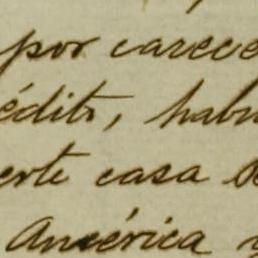 por carece
édito, hab
erte casa
América y